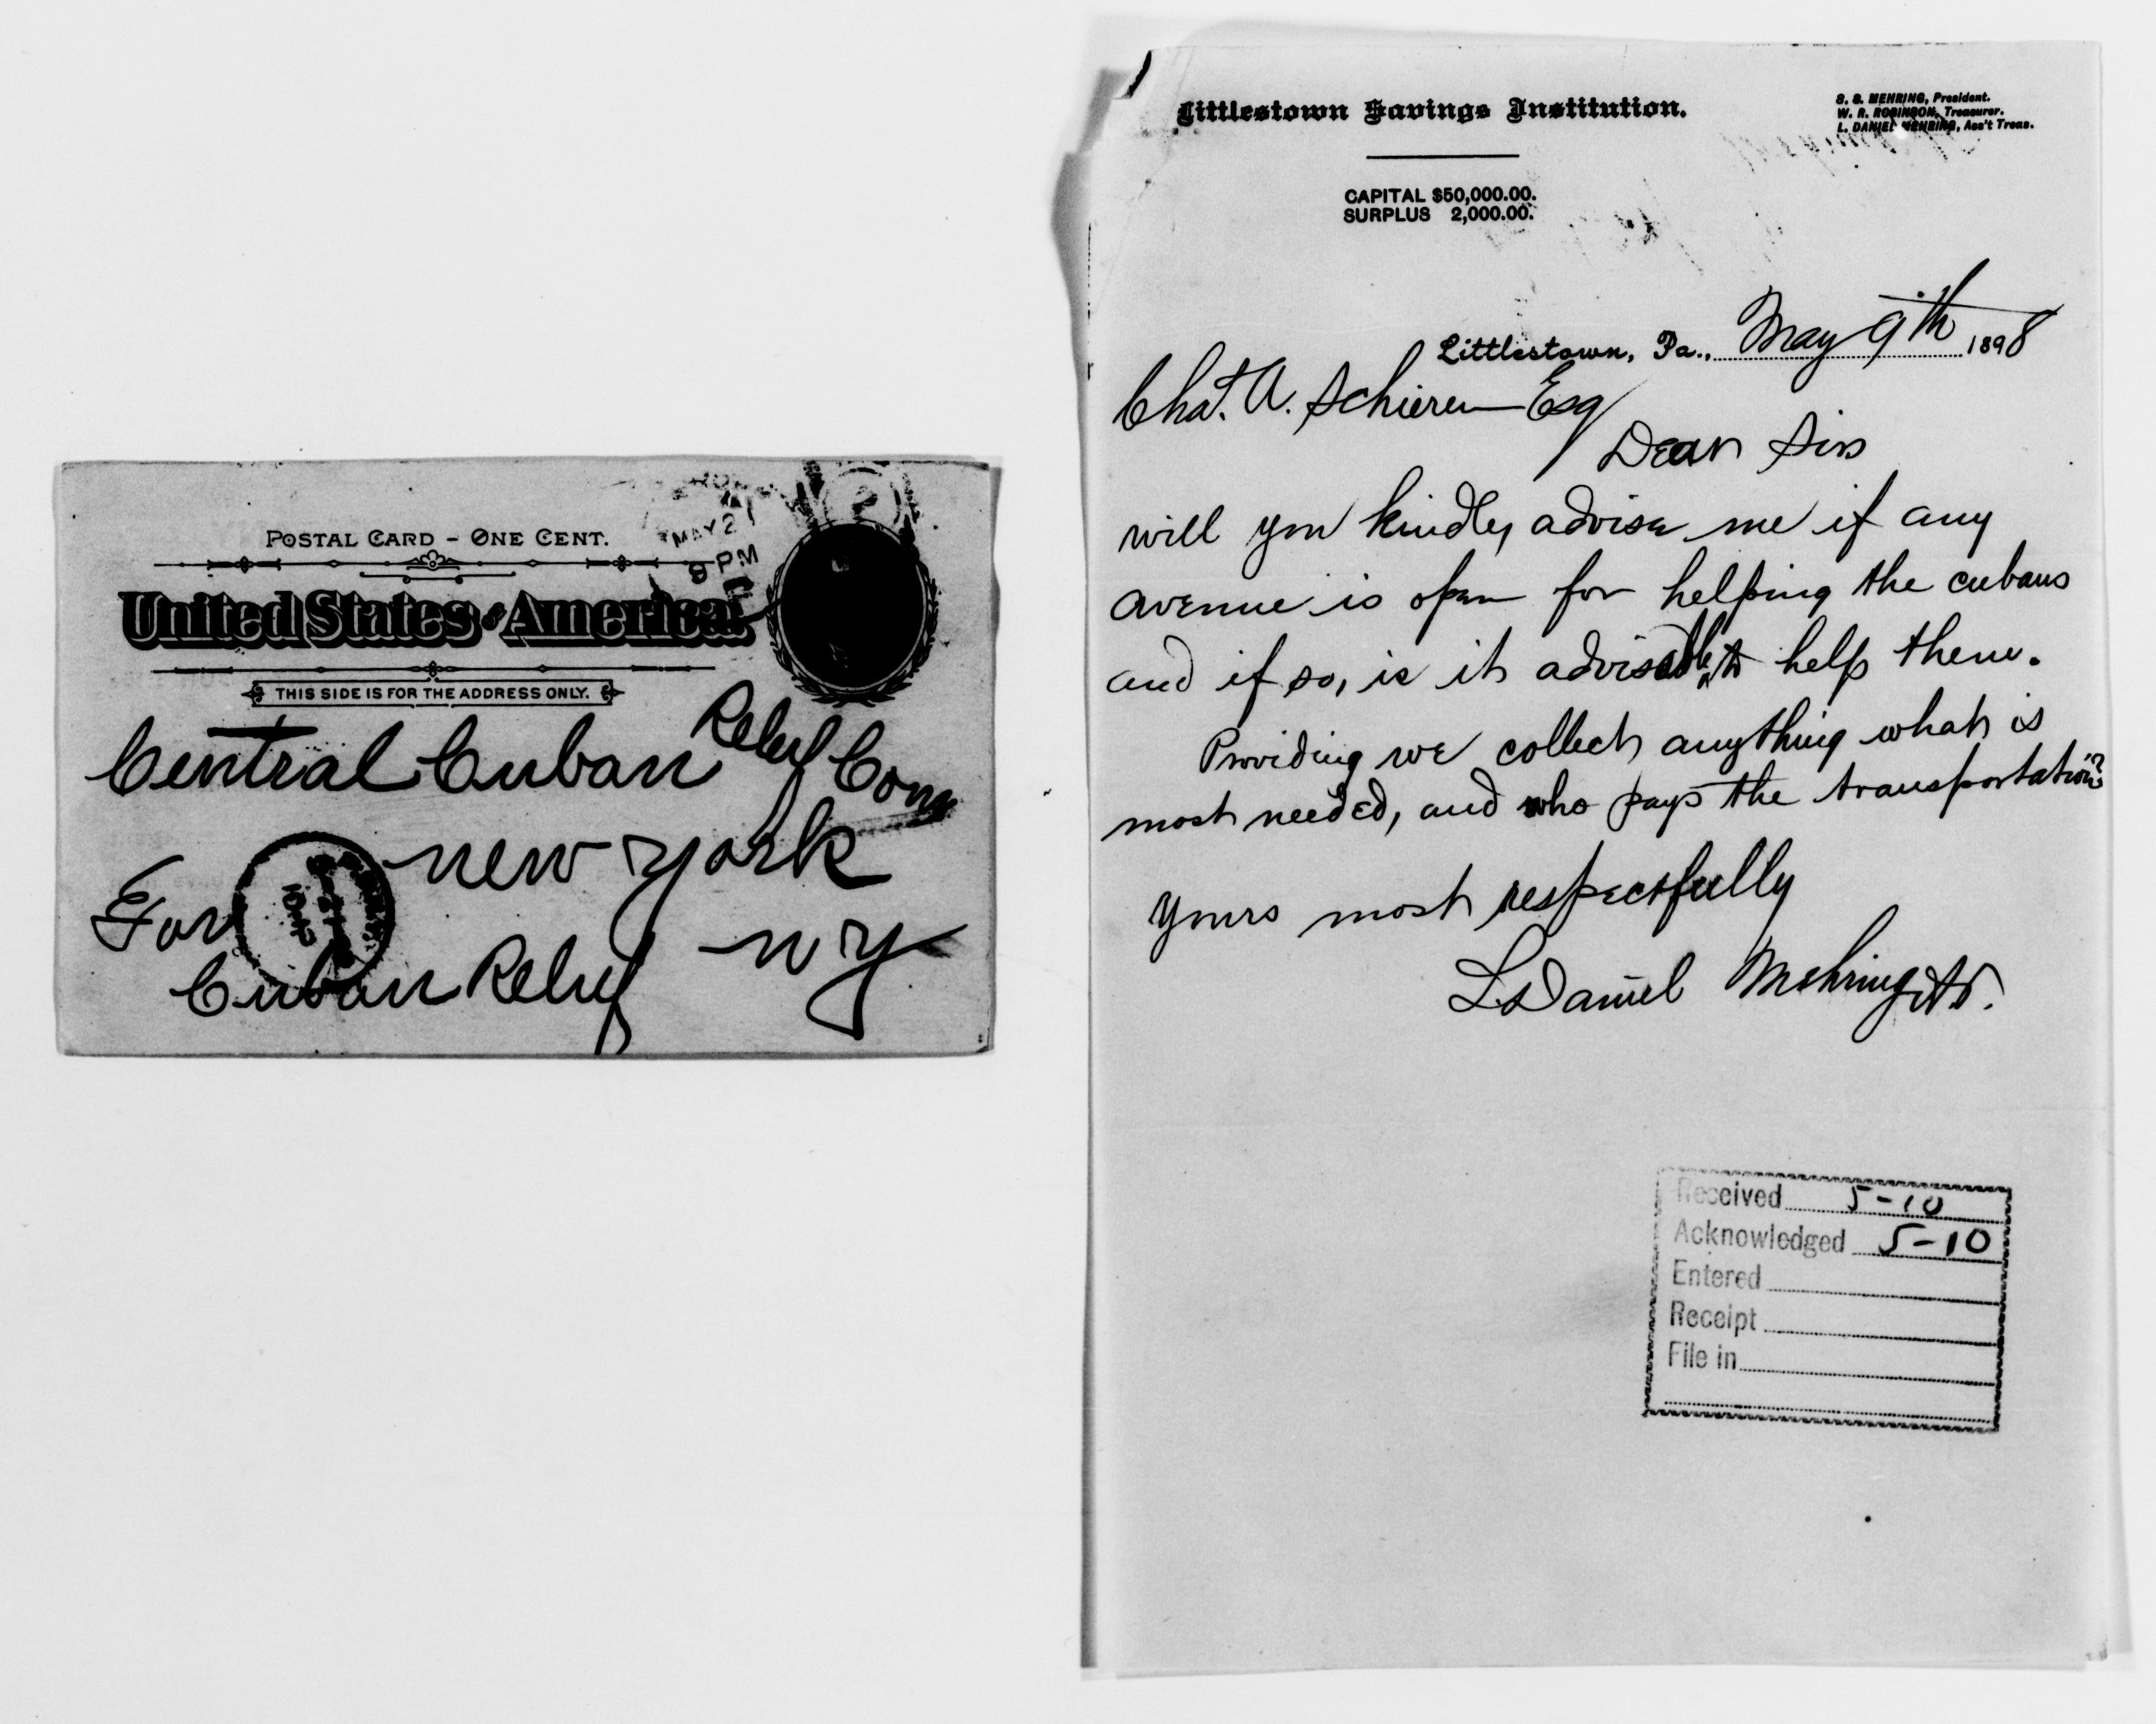 POSTAL CARD - ONE CENT.
United States of America
THIS SIDE IS FOR THE ADDRESS ONLY.
MAY 21
9 PM
2
Central Cuban Relief Com
new york
n y
For
Cuban Relief
Littlestown Savings Institution.
S. S. MEHRING, President.
W. R. ROBINSON, Treasurer.
L. DANIEL MEHRING, Ass't Treas.
CAPITAL $50,000.00.
SURPLUS 2,000.00.
Littlestown, Pa., May 9th 1898
Chas. A. Schieren Esq
Dear Sir
will you kindly advise me if any
avenue is open for helping the cubans
and if so, is it advisable to help them.
Providing we collect anything what is
most needed, and who pays the transportation?
yours most respectfully
L Daniel Mehring
Received 5-10
Acknowledged 5-10
Entered
Receipt
File in